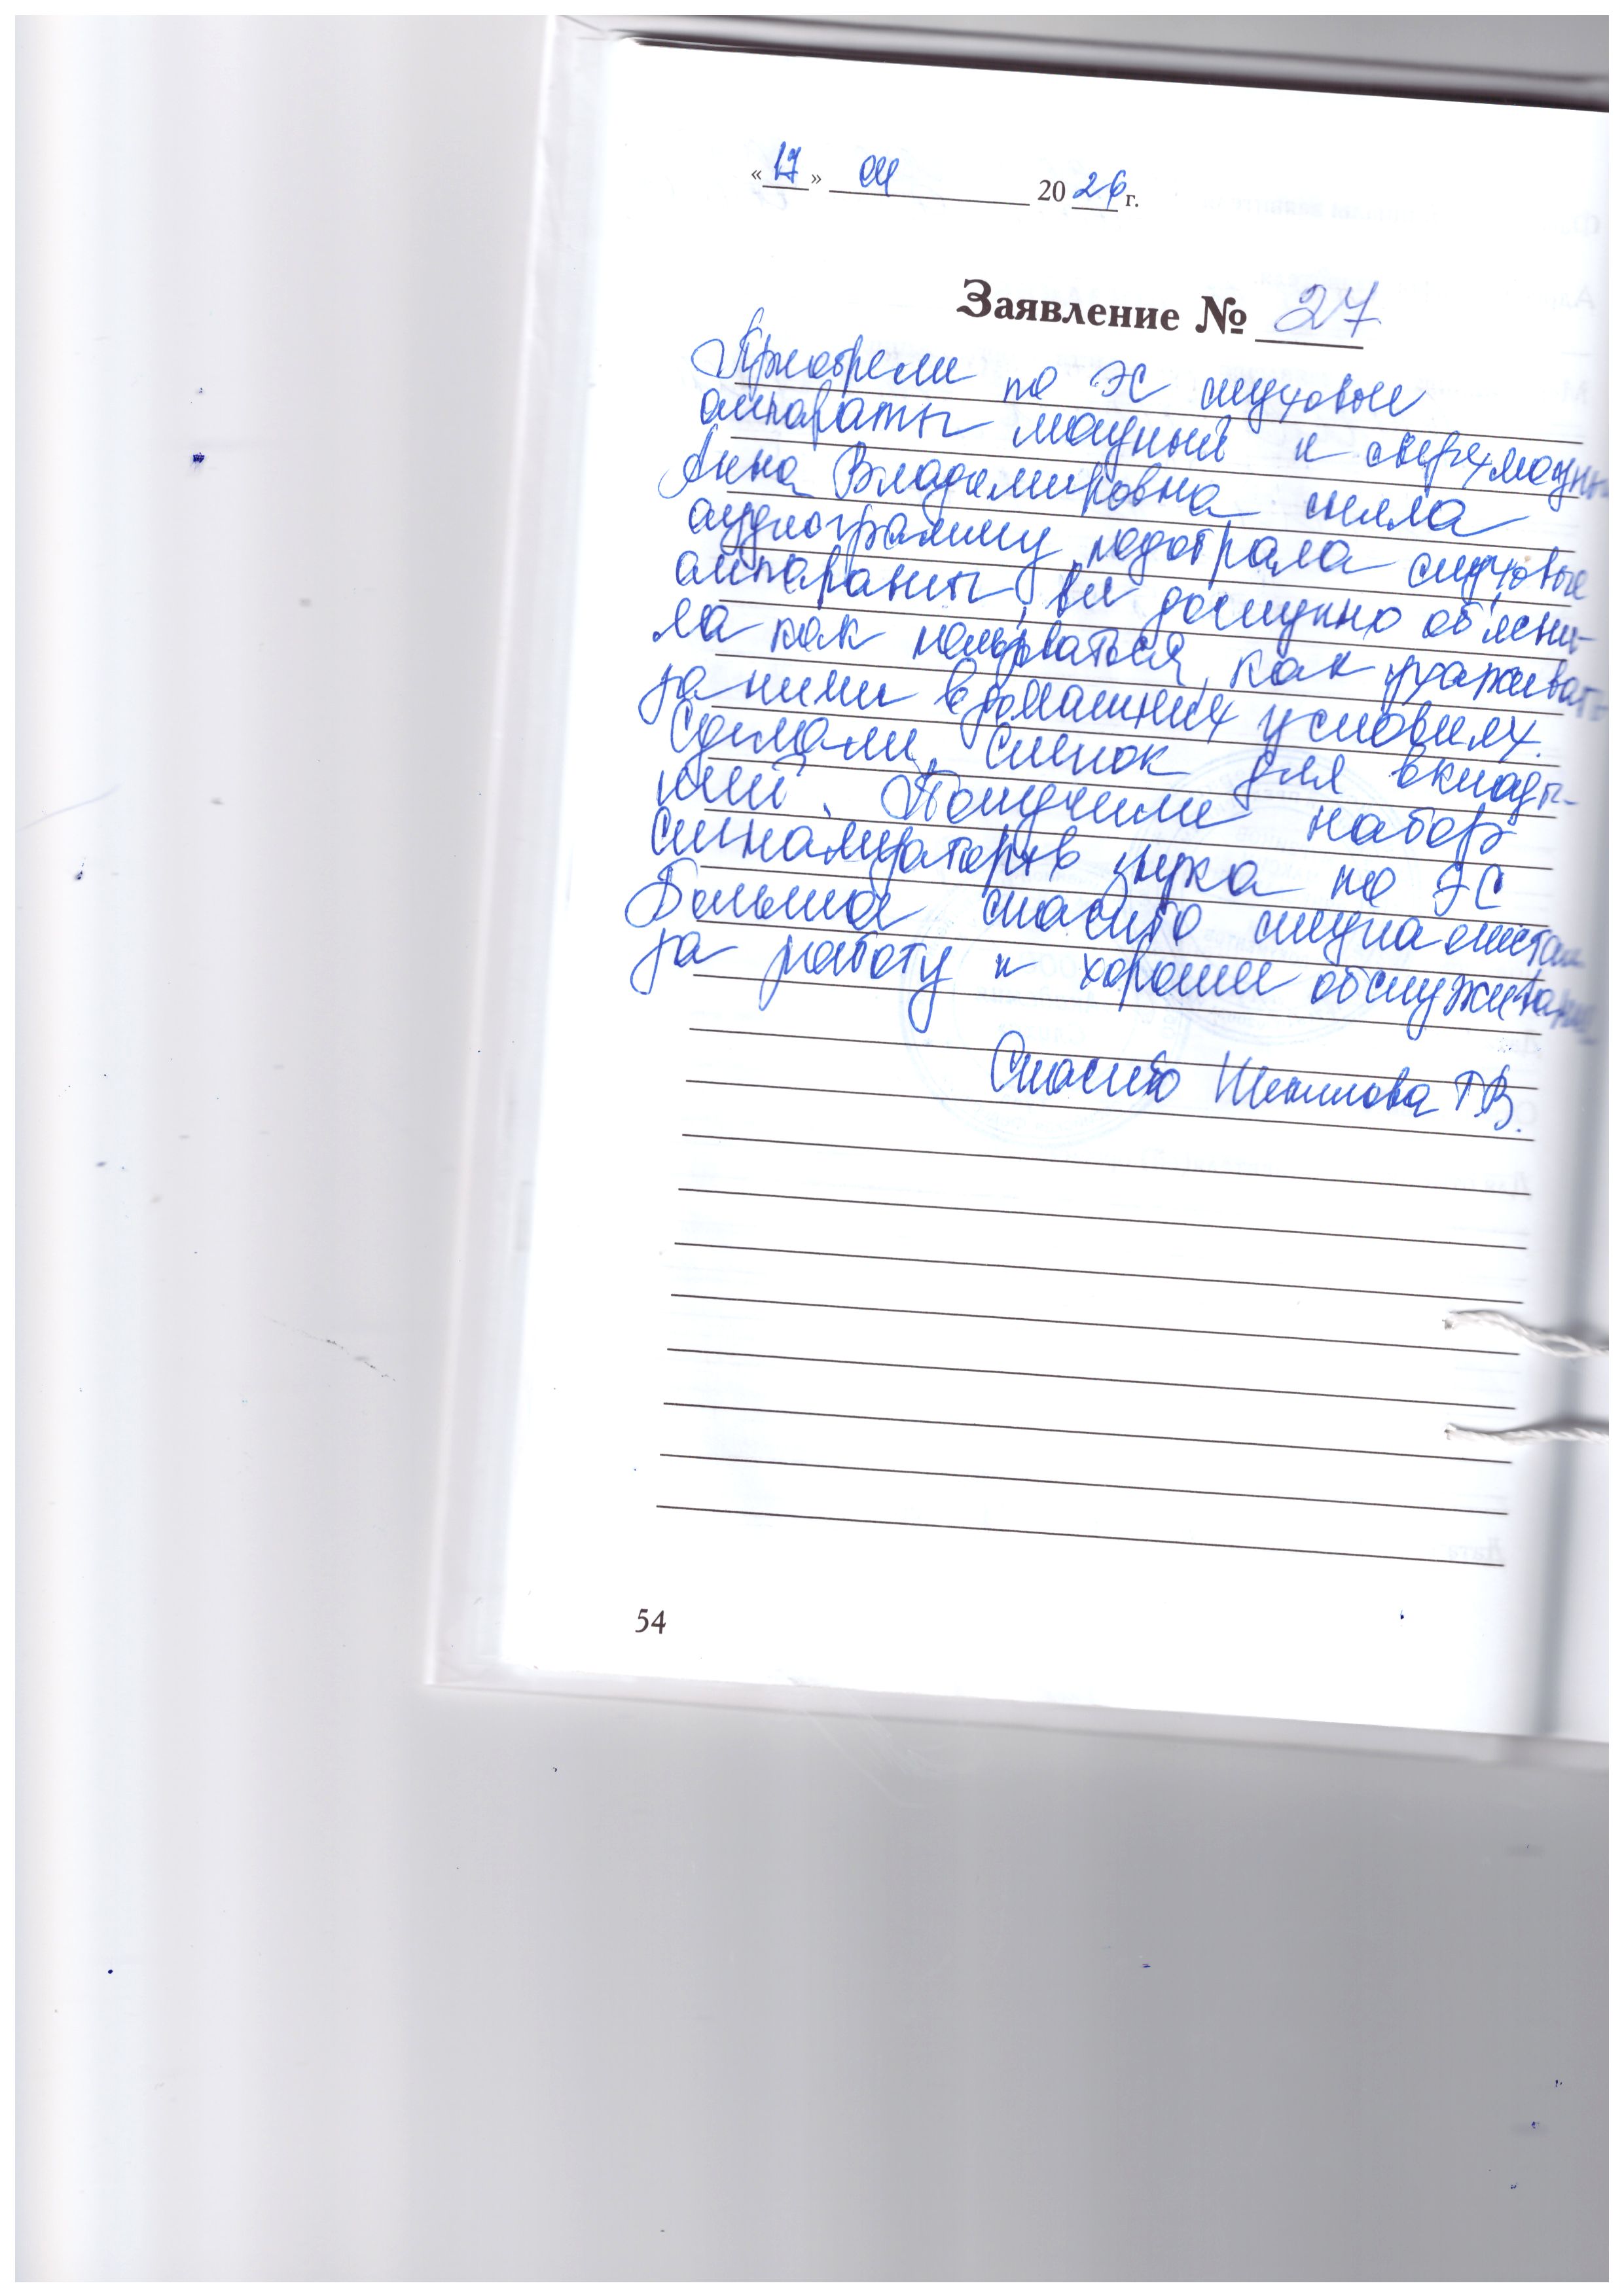 «17» 04 2026 г.
Заявление № 27
Приобрели по ЭС слуховые
аппараты мощный и сверхмощный
Анна Владимировна сняла
аудиограмму, подобрала слуховые
аппараты, всё доступно об'ясни-
ла как пользоваться, как ухаживать
за ними в домашних условиях.
Сделали слепок для вклады-
шей. Получили набор
сигнализаторов звука по ЭС
Большое спасибо специалистам
за работу и хорошее обслуживание
Спасибо Т.В.
54